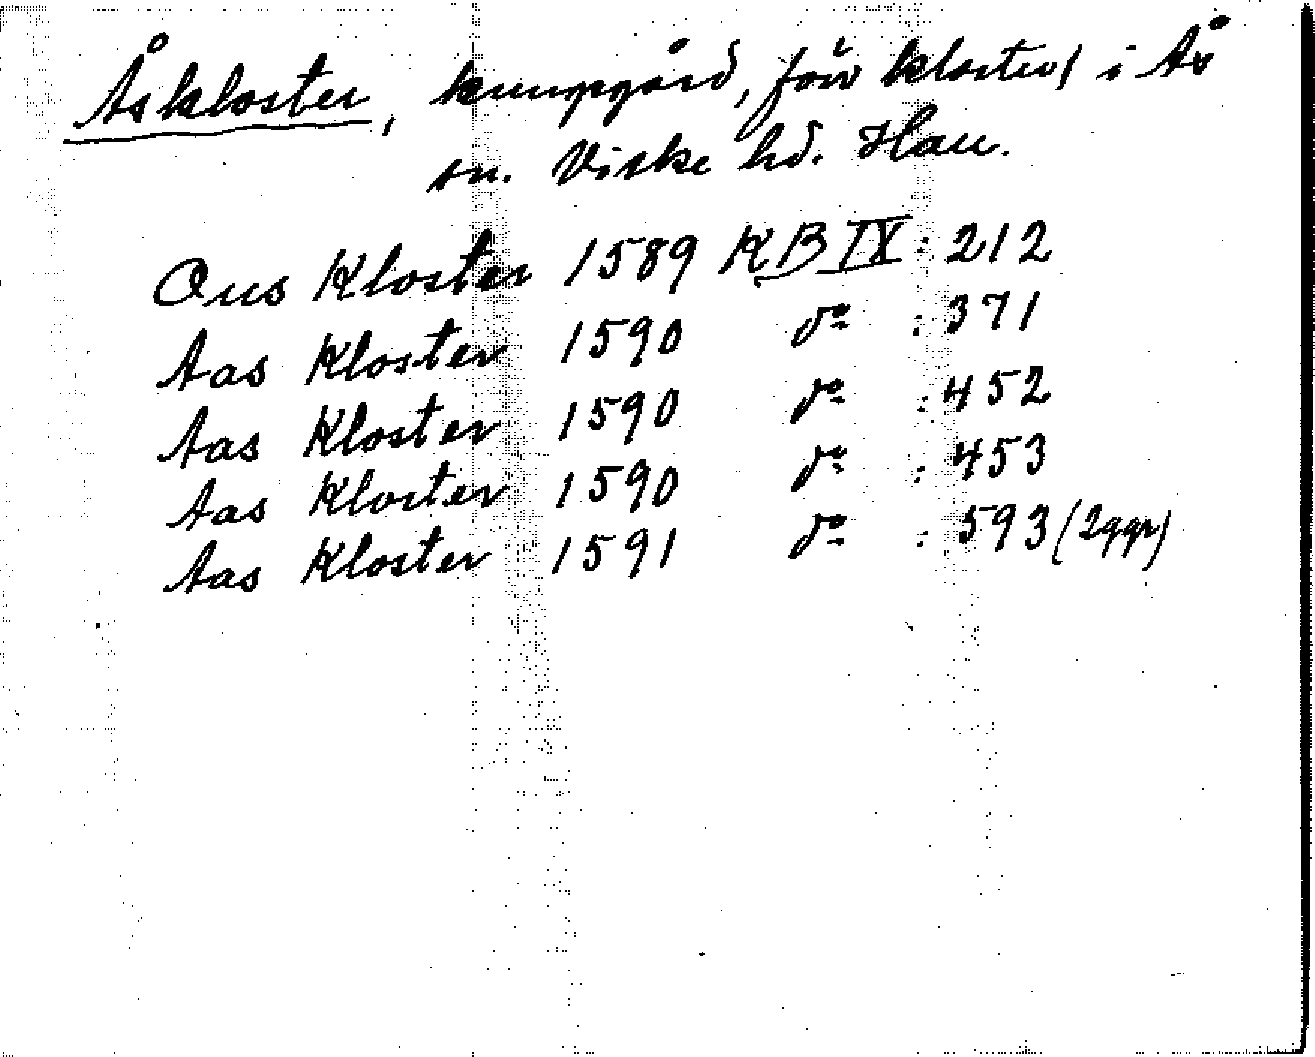 Åskloster, kungsgård, förv kloster, i Ås
sn. Viske hd. Hall.
Ous Kloster 1589 KB IX : 212
Aas Kloster 1590 do : 371
Aas Kloster 1590 do : 452
Aas Kloster 1590 do : 453
Aas Kloster 1591 do : 593 (2ggr)